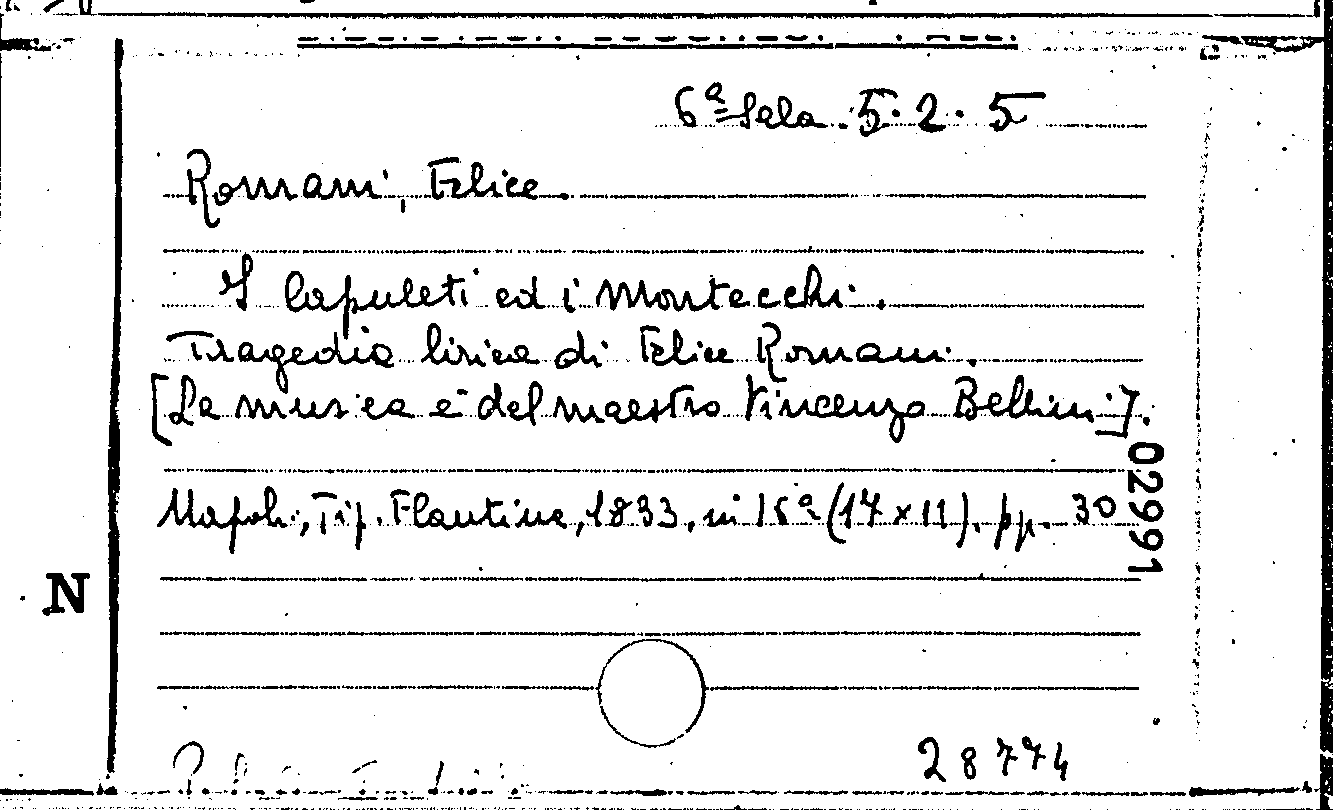 6ª Sala. 5. 2. 5
Romani, Felice.
I Capuleti ed i Montecchi.
Tragedia lirica di Felice Romani.
[La musica è del maestro Vincenzo Bellini].
Napoli, Tip. Flautina, 1833, in 16º (14 x 11). pp. 30
02991
N
28774